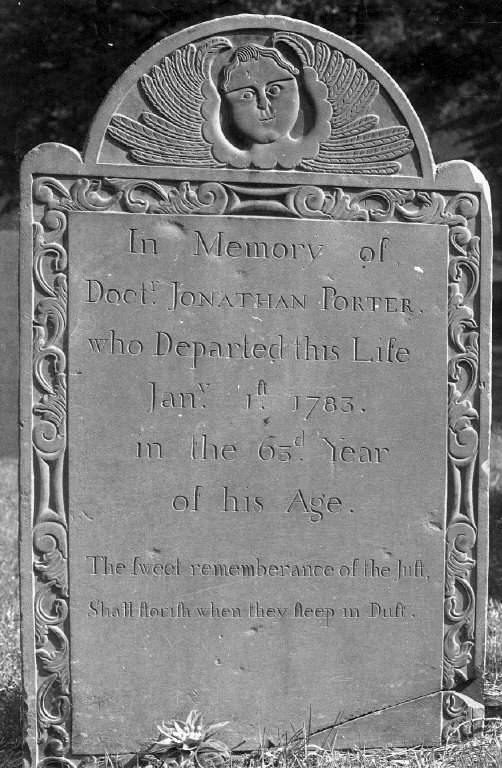 In Memory of
Doctʳ. JONATHAN PORTER.
who Departed this Life
Janʸ. 1ſt. 1783.
in the 63ᵈ. Year
of his Age.
The ſweet rememberance of the Juſt,
Shall floriſh when they ſleep in Duſt.